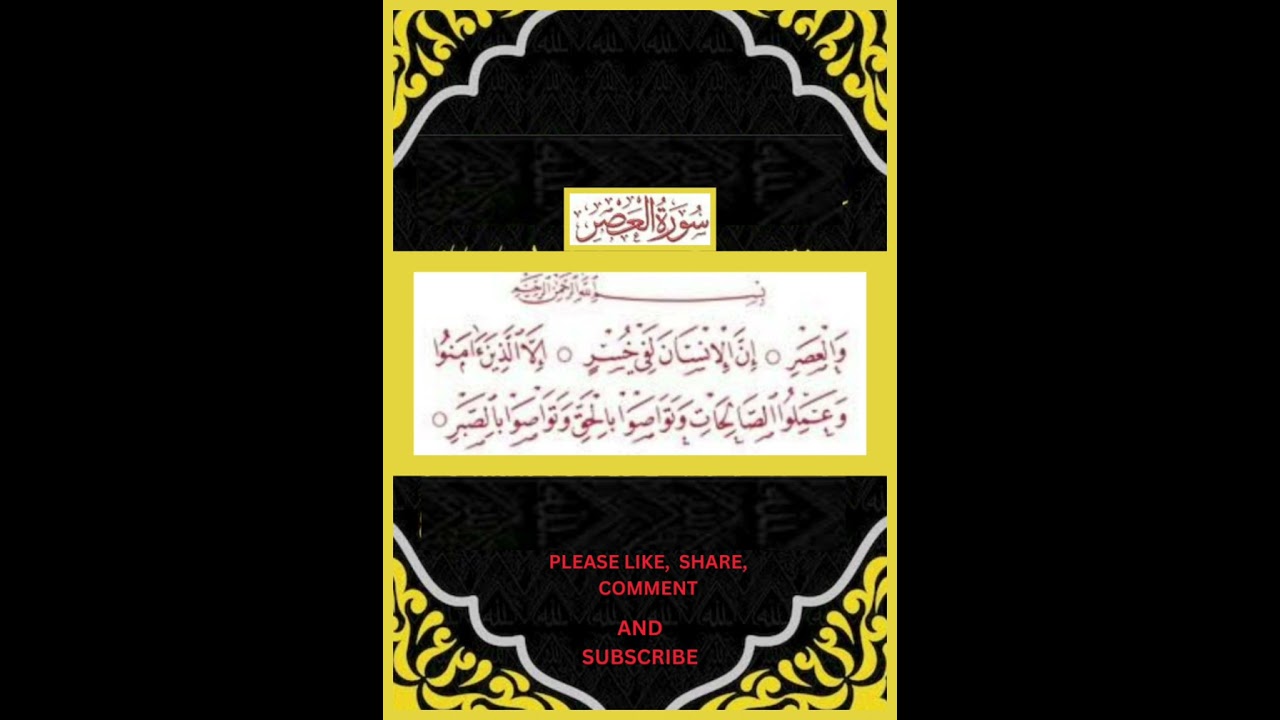 سُورَةُ العَصْرِ
بِسْمِ اللَّهِ الرَّحْمَنِ الرَّحِيمِ
وَالْعَصْرِ ○ إِنَّ الْإِنْسَانَ لَفِي خُسْرٍ ○ إِلَّا الَّذِينَ ءَامَنُوا
وَعَمِلُوا الصَّالِحَاتِ وَتَوَاصَوْا بِالْحَقِّ وَتَوَاصَوْا بِالصَّبْرِ ○
PLEASE LIKE, SHARE,
COMMENT
AND
SUBSCRIBE